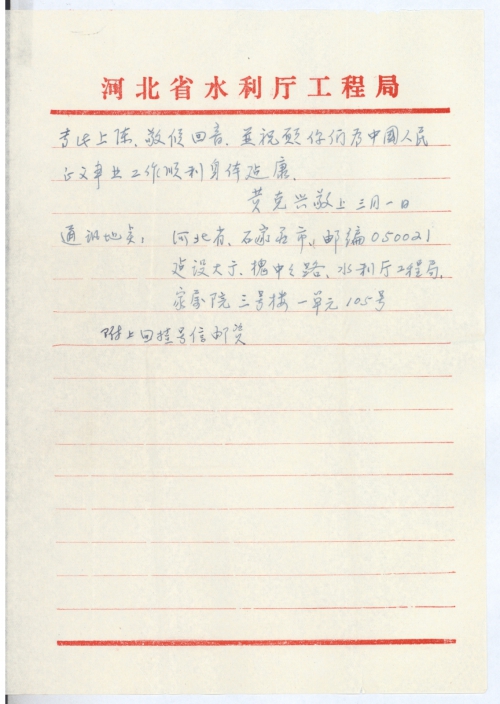 河北省水利厅工程局
专此上陈、敬候回音、并祝愿你们为中国人民
正义事业工作顺利身体延康、
黄克兴敬上 三月一日
通讯地点：河北省、石家庄市、邮编050021
建设大于、槐中路、水利厅工程局、
家属院三号楼一单元105号
附上回挂号信邮资